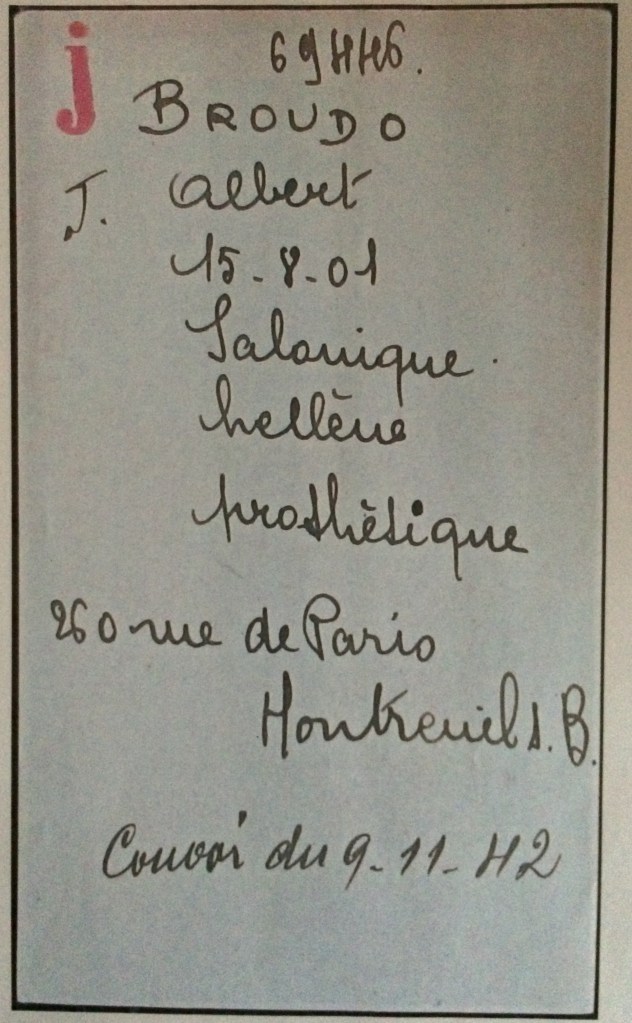 j
69446.
BROUDO
J. Albert
15-8-01
Salonique.
hellène
prothètique
260 rue de Paris
Montreuil s. B.
Convoi du 9-11-42